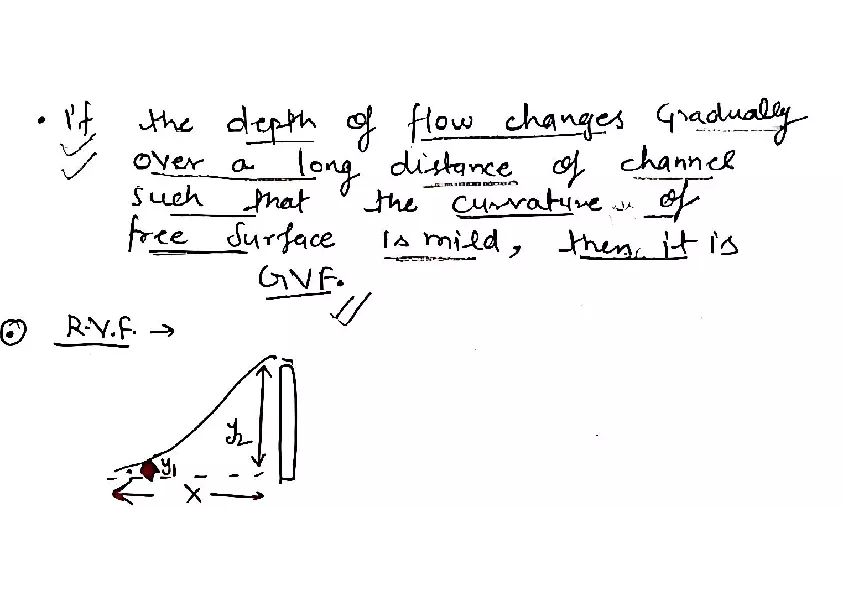 • if the depth of flow changes Gradually
over a long distance of channel
such that the curvature of
free surface is mild, then, it is
GVF.
R.V.F. →
y₂
y₁
X